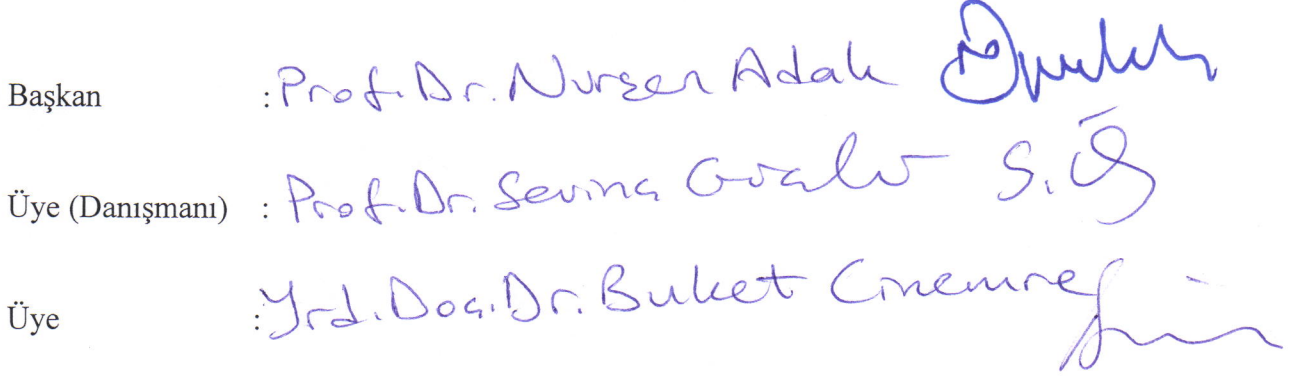 Başkan : Prof. Dr. Nurşen Adak
Üye (Danışmanı) : Prof. Dr. Sevinç
Üye : Yrd. Doç. Dr. Buket Cinemre